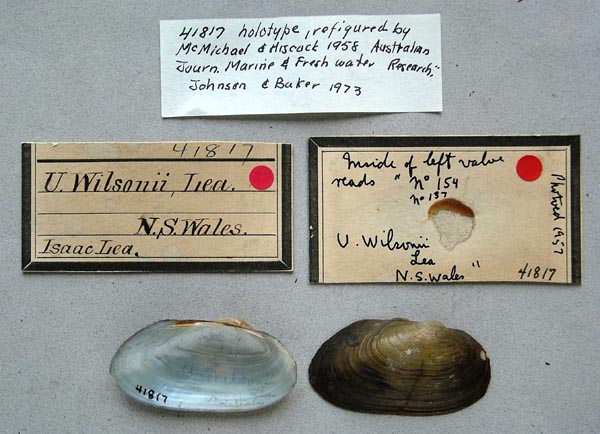 41817 holotype, refigured by
McMichael & Hiscock 1958 Australian
Journ. Marine & Fresh water Research,"
Johnson & Baker 1973
41817
U. Wilsonii, Lea.
N.S. Wales.
Isaac Lea.
Inside of left valve
reads "No 154
No 137
U. Wilsonii
Lea
N.S. Wales"
41817
Photoed 1957
U. Wilsonii
N.S. Wales
41817